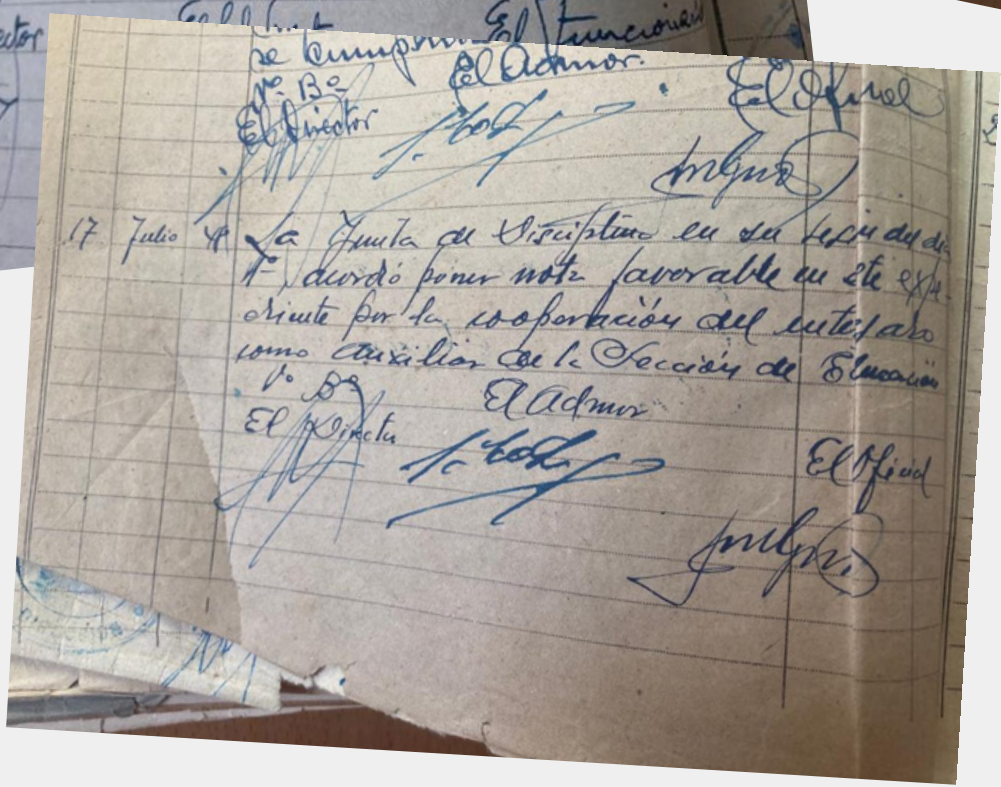 ector El Funcionario
se
Vº Bº El Admor. El Oficial
El Director
17 Julio 48 La Junta de Disciplina en su sesión del dia
1º acordó poner nota favorable en este expe-
diente por la cooperación del interesado
como auxiliar de la Sección de Educación
Vº Bº El Admor
El Director El Oficial